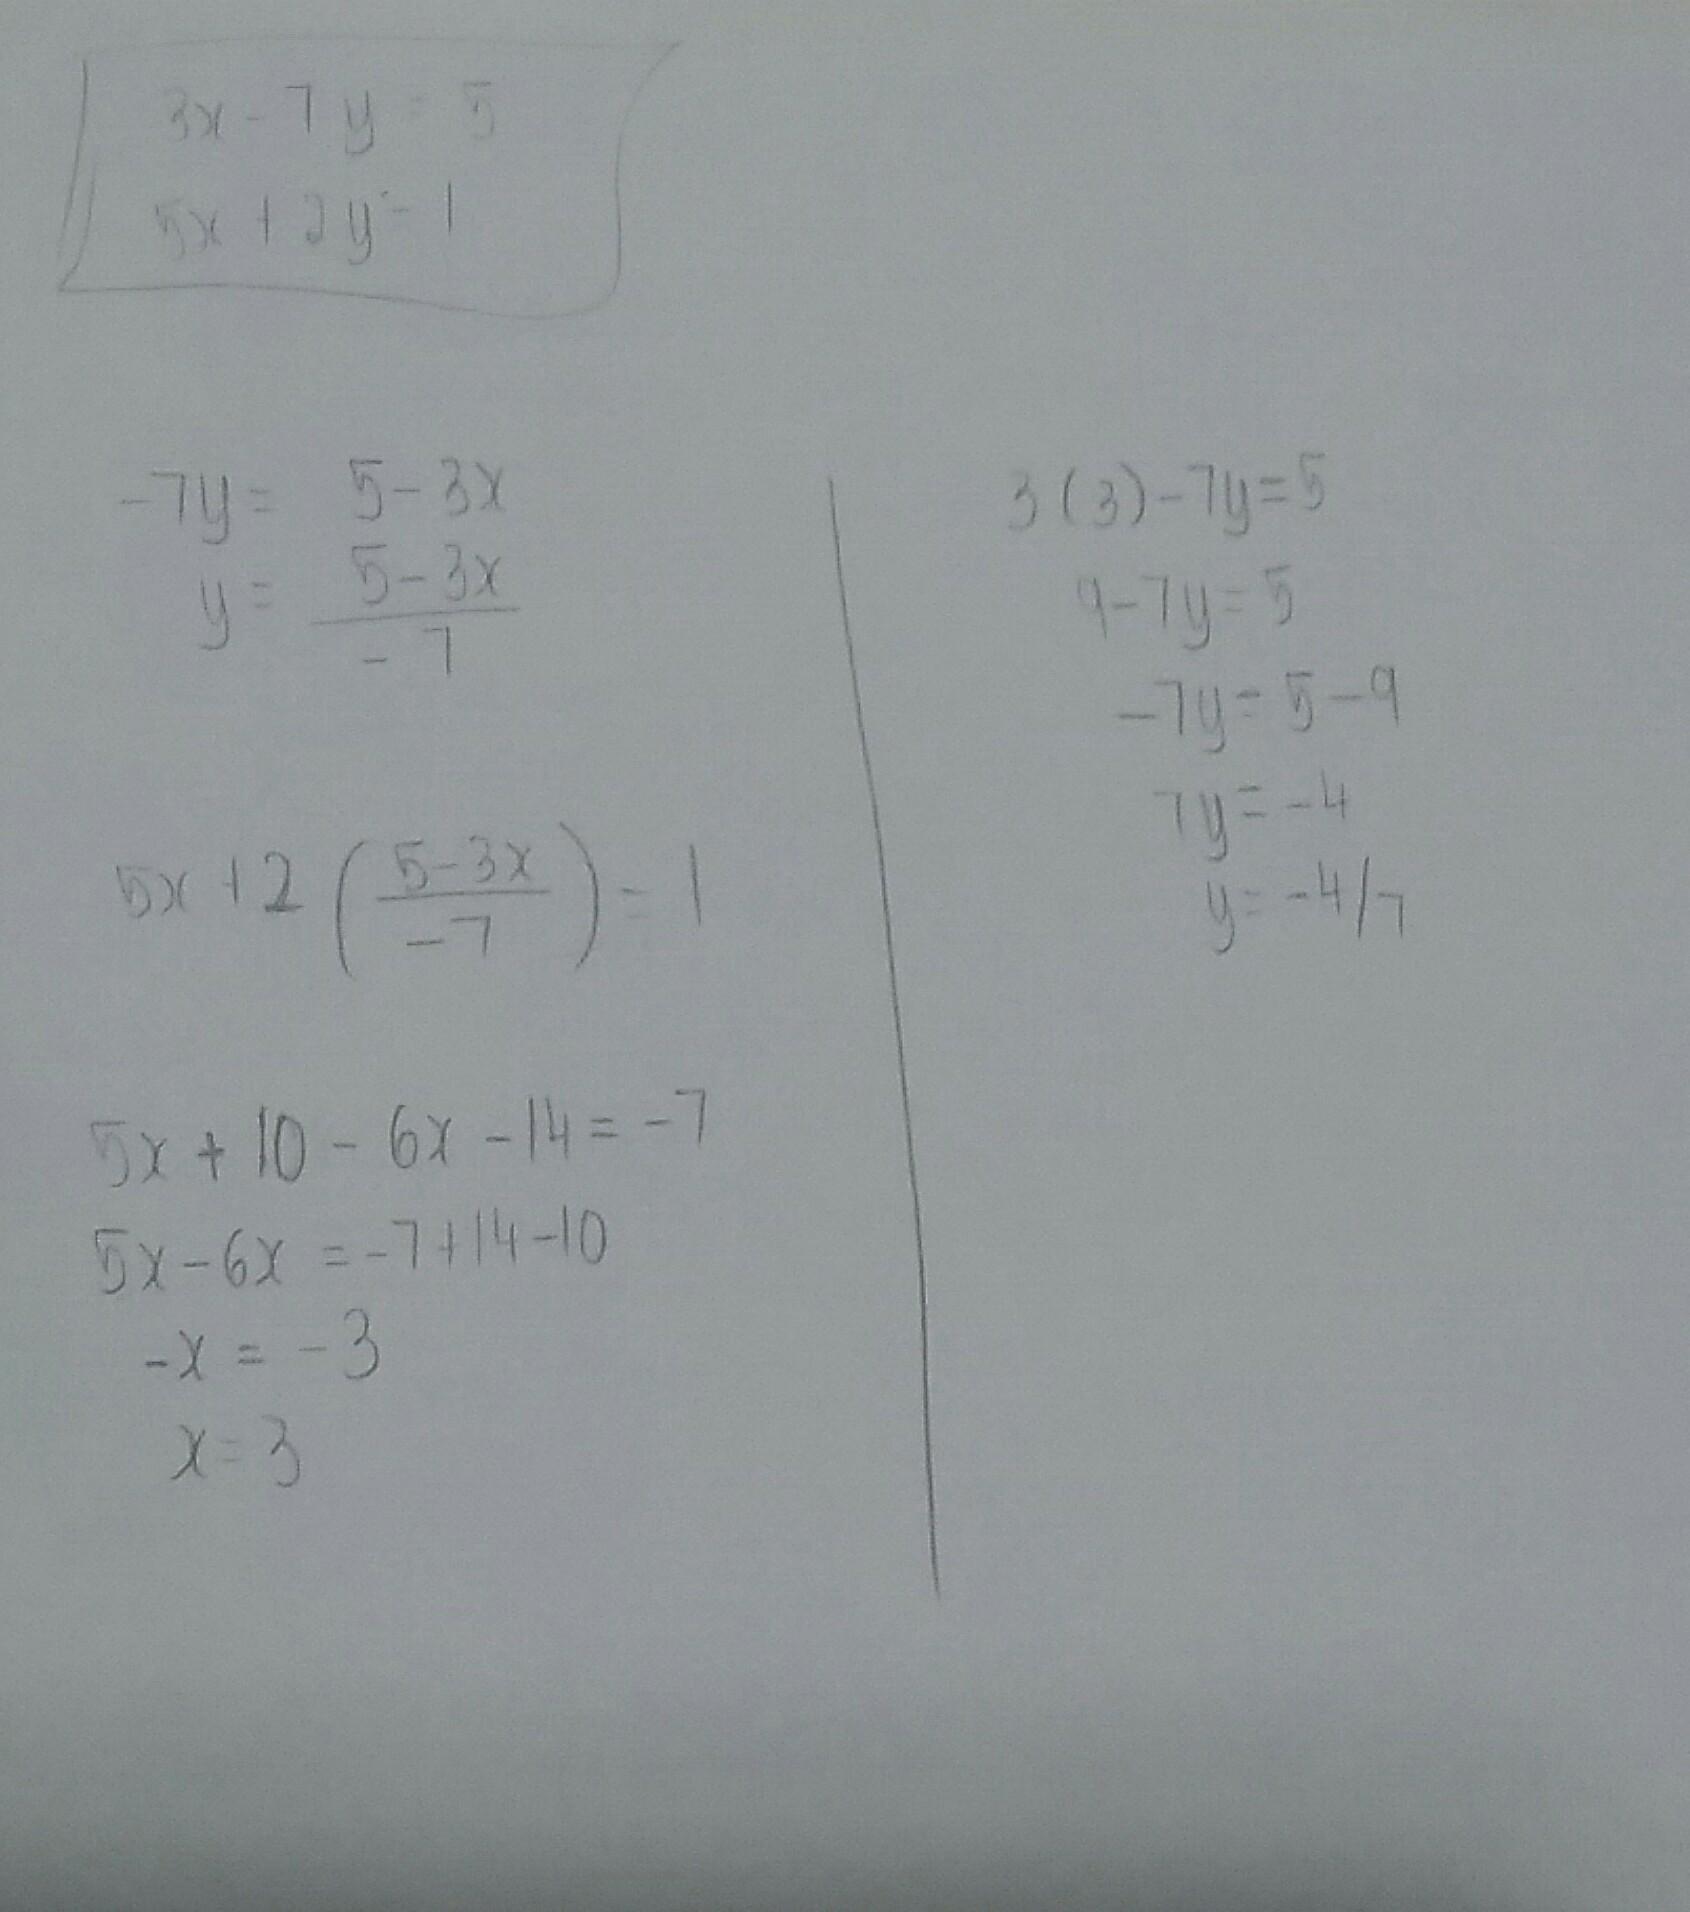 3x - 7y = 5
5x + 2y = 1
-7y = 5 - 3x
y = 5 - 3x / -7
5x + 2 ( 5 - 3x / -7 ) = 1
5x + 10 - 6x - 14 = -7
5x - 6x = -7 + 14 - 10
-x = -3
x = 3
3(3) - 7y = 5
9 - 7y = 5
-7y = 5 - 9
7y = -4
y = -4/7